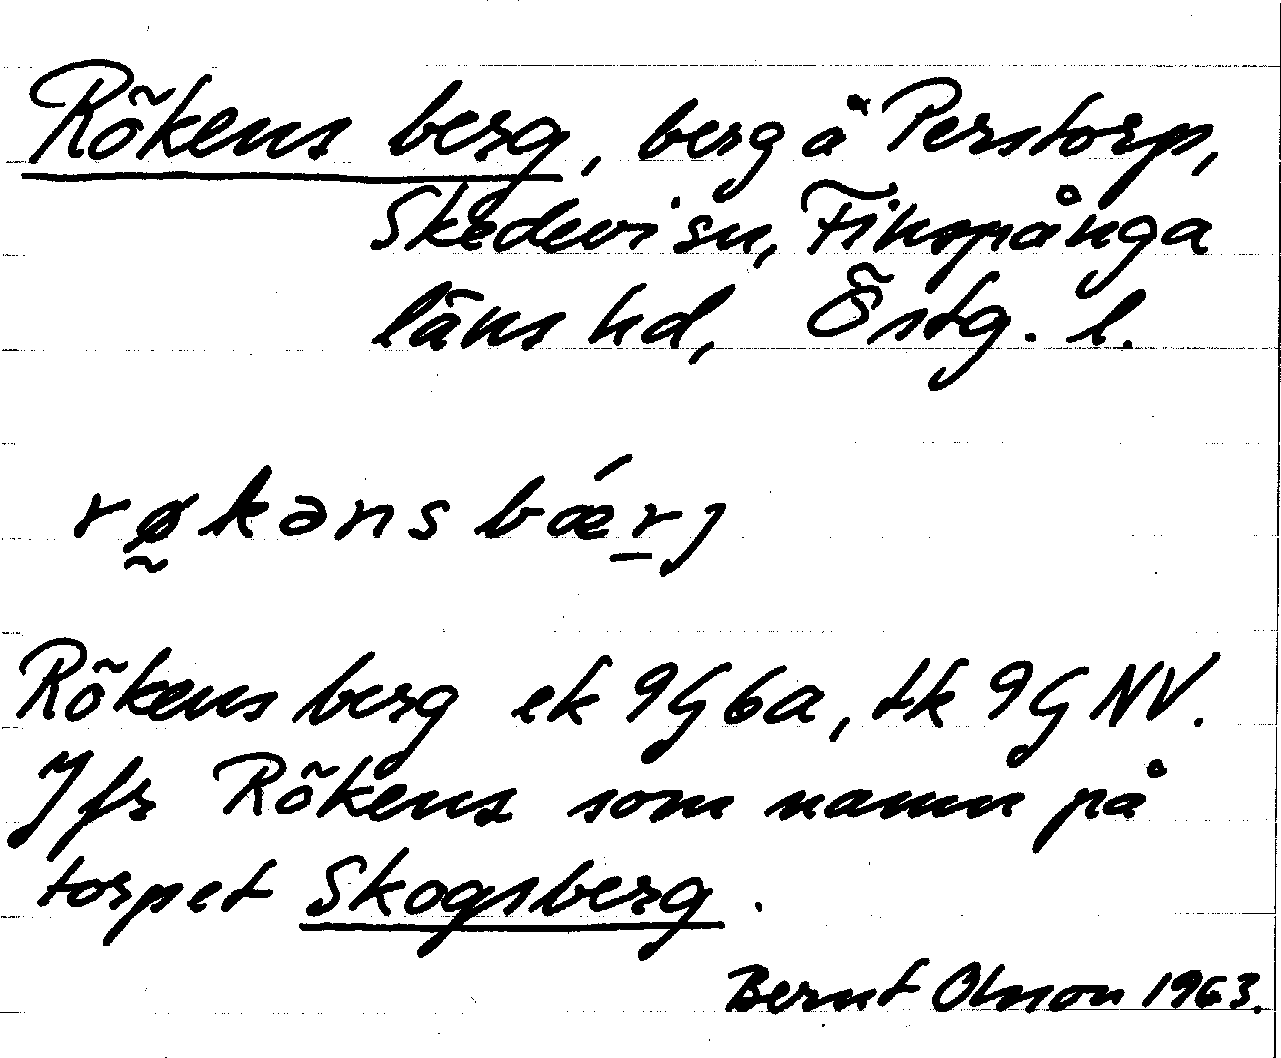 Rökens berg, berg å Perstorp,
Skedevi sn, Finspånga
läns hd, Östg. l.
rø̰kəns bǽr̲j
Rökens berg ek 9G6a, tk 9GNV.
Jfr Rökens som namn på
torpet Skogsberg.
Bernt Olsson 1963.